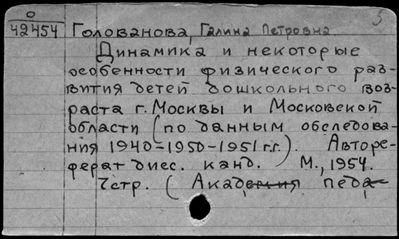 О
42454 Голованова, Галина Петровна
Динамика и некоторые
особенности физического раз-
вития детей дошкольного воз-
раста г. Москвы и Московской
области (по данным обследова-
ния 1940-1950-1951 г.г.). Авторе-
ферат дисс. канд. М., 1954.
7стр. (Академия педа-